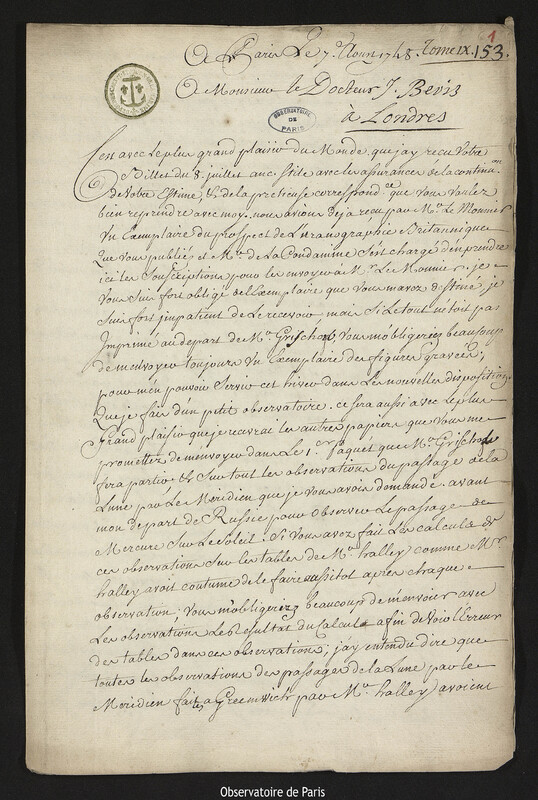 1
A Paris Le 7.e Aoust 1748. Tome IX. 153.
A Monsieur le Docteur J. Bevis
à Londres
OBSERVATOIRE
DE
PARIS
C'est avec le plus grand plaisir du Monde, que jay recu Votre
Billet du 8. juillet anc. stile avec les assurances de la continua.on
de Votre Estime, & de la pretieuse correspond.ce que vous voulez
bien reprendre avec moy. nous avions deja recu par Mr. Le Monnier
Un Exemplaire du prospect de L'uranographie Britannique
Que vous publiés et Mr. de La Condamine s'est chargé d'en prendre
ici les souscriptions pour les envoyer a Mr. Le Monnier. je
Vous suis fort obligé de l'Exemplaire que vous m'avez destiné, je
suis fort impatient de Le recevoir, mais si Le tout n'etoit pas
Imprimé au depart de Mr. Grischow, vous m'obligeriez beaucoup
de m'envoyer toujours Un Exemplaire des figures gravées,
pour m'en pouvoir servir cet hiver dans Les nouvelles dispositions
Que je fais d'un petit observatoire. ce sera aussi avec le plus
Grand plaisir que je recevrai les autres papiers que vous me
promettez de m'envoyer dans Le 1.er paquet que Mr. Grischow
fera partir & sur tout les observations du passage de la
Lune par Le Meridien que je vous avois demandé avant
mon depart de Russie pour observer Le passage de
Mercure sur Le Soleil. Si Vous avez fait Les calculs de
ces observations sur les tables de Mr. halley comme Mr.
halley avoit coutume de le faire aussitot apres chaque
observation; vous m'obligeriez beaucoup de m'envoier avec
Les observations Le Resultat du Calcul afin de Voir l'Erreur
des tables dans ces observations; j'ay entendu dire que
toutes les observations des passages de la Lune par le
Meridien faites a Greenwich par Mr. halley avoient
Observatoire de Paris